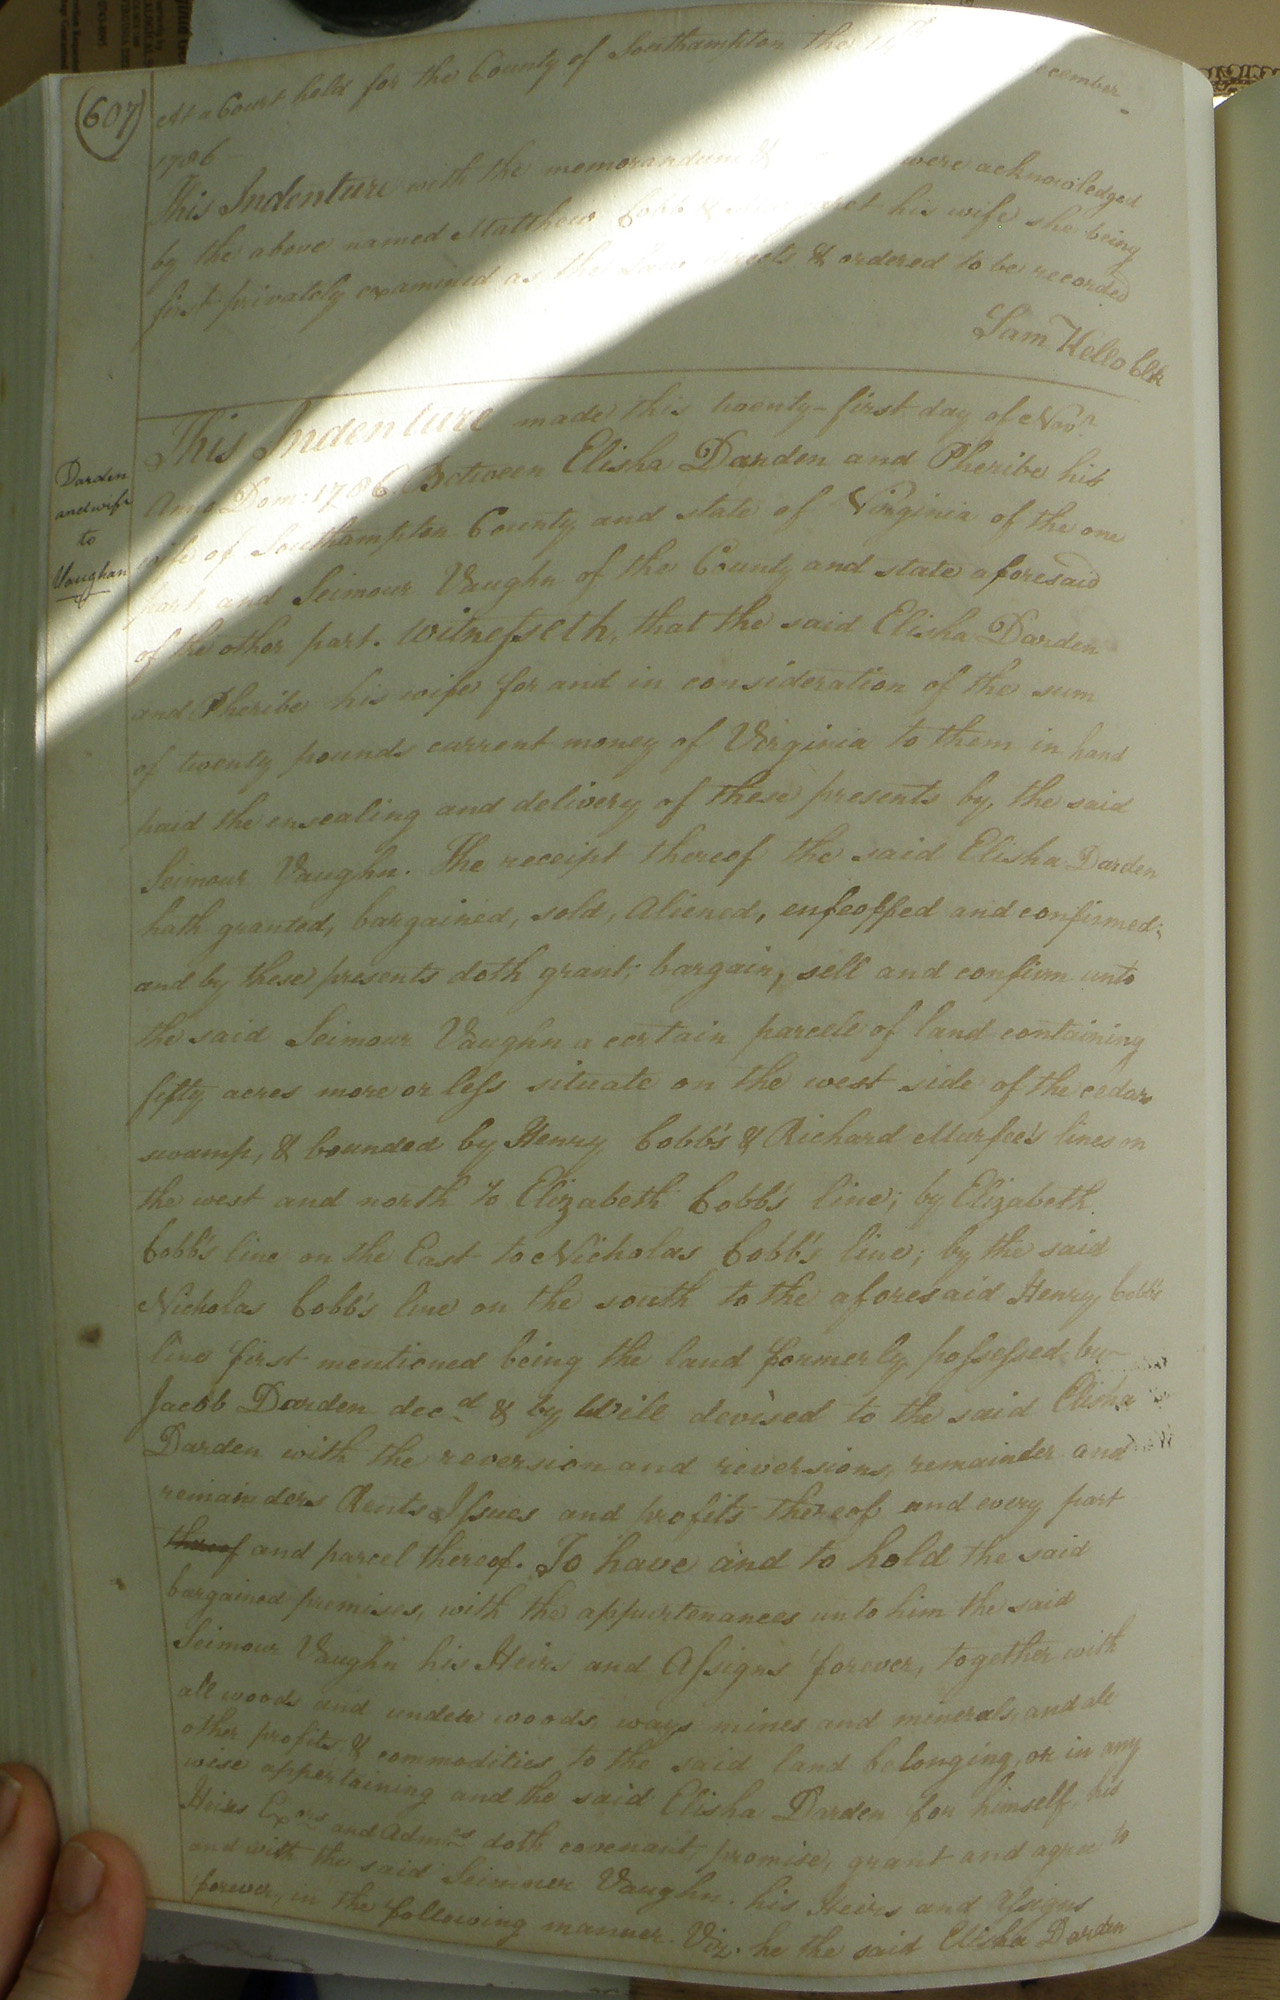 (607)
At a Court held for the County of Southampton the 14th December
1786
This Indenture with the memorandum & were acknowledged
by the above named Matthew Cobb & his wife she being
first privately examined as the Law directs & ordered to be recorded
Sam Kello Clk
Darden
and wife
to
Vaughan
This Indenture made this twenty-first day of Novr
Anno Dom: 1786 Between Elisha Darden and Pheribe his
wife of Southampton County and state of Virginia of the one
part and Seimour Vaughn of the County and state aforesaid
of the other part. Witnesseth, that the said Elisha Darden
and Pheribe his wife for and in consideration of the sum
of twenty pounds current money of Virginia to them in hand
paid the ensealing and delivery of these presents by, the said
Seimour Vaughn. The receipt thereof the said Elisha Darden
hath granted, bargained, sold, aliened, enfeoffed and confirmed;
and by these presents doth grant, bargain, sell and confirm unto
the said Seimour Vaughn a certain parcele of land containing
fifty acres more or less situate on the west side of the cedar
swamp, & bounded by Henry Cobb's & Richard Murfee's lines on
the west and north to Elizabeth Cobb's line; by Elizabeth
Cobb's line on the East to Nicholas Cobb's line; by the said
Nicholas Cobb's line on the south to the aforesaid Henry Cobb's
line first mentioned being the land formerly possessed by
Jacob Darden decd & by Will devised to the said Elisha
Darden with the reversion and reversions, remainder and
remainders Rents Issues and profits thereof and every part
thereof and parcel thereof. To have and to hold the said
bargained premises, with the appurtenances unto him the said
Seimour Vaughn his Heirs and Assigns forever, together with
all woods and under woods, ways mines and minerals, and all
other profits & commodities to the said land belonging, or in any
wise appertaining and the said Elisha Darden for himself, his
Heirs Exors and Admrs doth covenant, promise, grant and agree to
and with the said Seimner Vaughn. his Heirs and Assigns
forever, in the following manner. Viz. he the said Elisha Darden